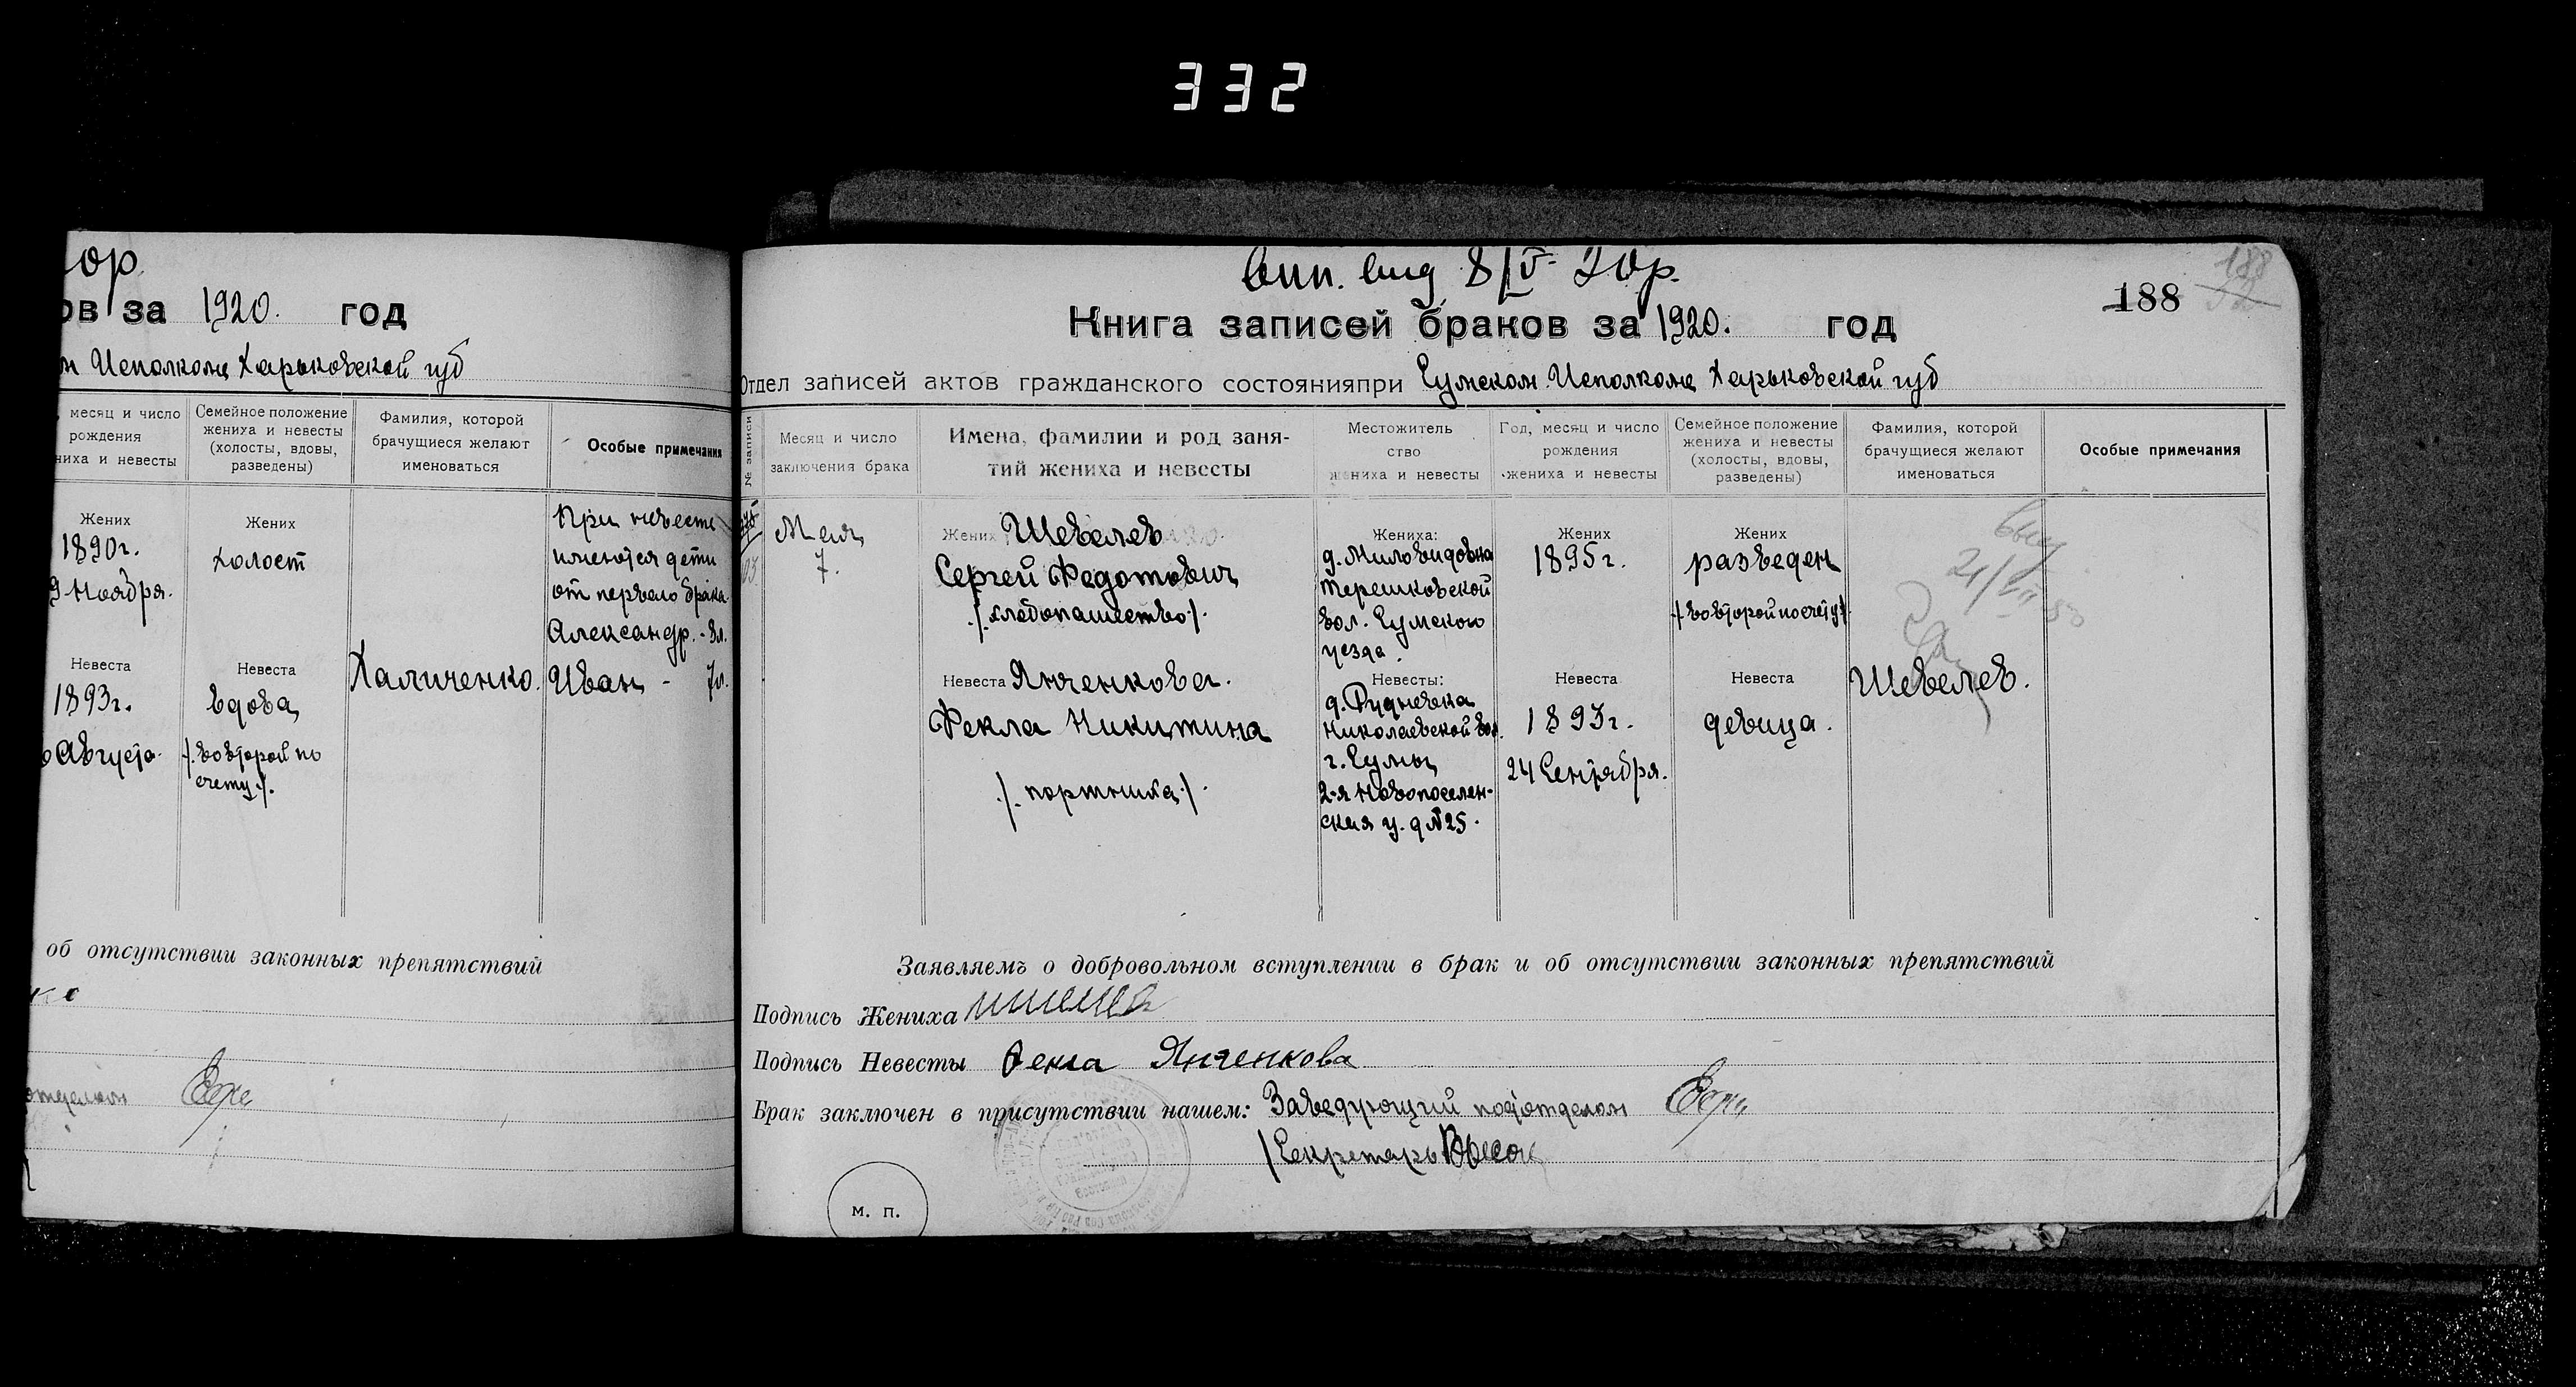 332
ор.
ов за 1920. год
м Исполкоме Харьковской губ
месяц и число
рождения
ниха и невесты
Семейное положение
жениха и невесты
(холосты, вдовы,
разведены)
Фамилия, которой
брачущиеся желают
именоваться
Особые примечания
Жених
1890г.
9 Ноября.
Невеста
1893г.
Августа.
Жених
холост
Невеста
вдова
/. во второй по
счету ./.
Халиченко.
При невесте
имеются дети
от первого брака
Александр. - 8л.
Иван - 7л.
об отсутствии законных препятствий
ко
188
Вип. вид 8/V 20р.
188
Книга записей браков за 1920. год
Отдел записей актов гражданского состоянияпри Сумском Исполкоме Харьковской губ
№ записи
Месяц и число
заключения брака
Имена, фамилии и род заня-
тий жениха и невесты
Местожитель
ство
жениха и невесты
Год, месяц и число
рождения
жениха и невесты
Семейное положение
жениха и невесты
(холосты, вдовы,
разведены)
Фамилия, которой
брачущиеся желают
именоваться
Особые примечания
Мая
7.
Жених Шевелев
Сергей Федотович
/. хлебопашество ./.
Невеста Янченкова.
Фекла Никитина
/. портниха ./.
Жениха:
д. Миловидовка
Терешковской
вол. Сумского
уезда.
Невесты:
д. Рудневка
Николаевской вол.
г. Сумы
2-я Новопоселен-
ская у. д №25.
Жених
1895г.
Невеста
1893г.
24 Сентября.
Жених
разведен
/. во второй по счету ./.
Невеста
девица.
Шевелев.
Заявляемъ о добровольном вступлении в брак и об отсутствии законных препятствий
Подпись Жениха
Подпись Невесты Фекла Янченкова
Брак заключен в присутствии нашем: Заведующий подотделом
Секретарь
м. п.